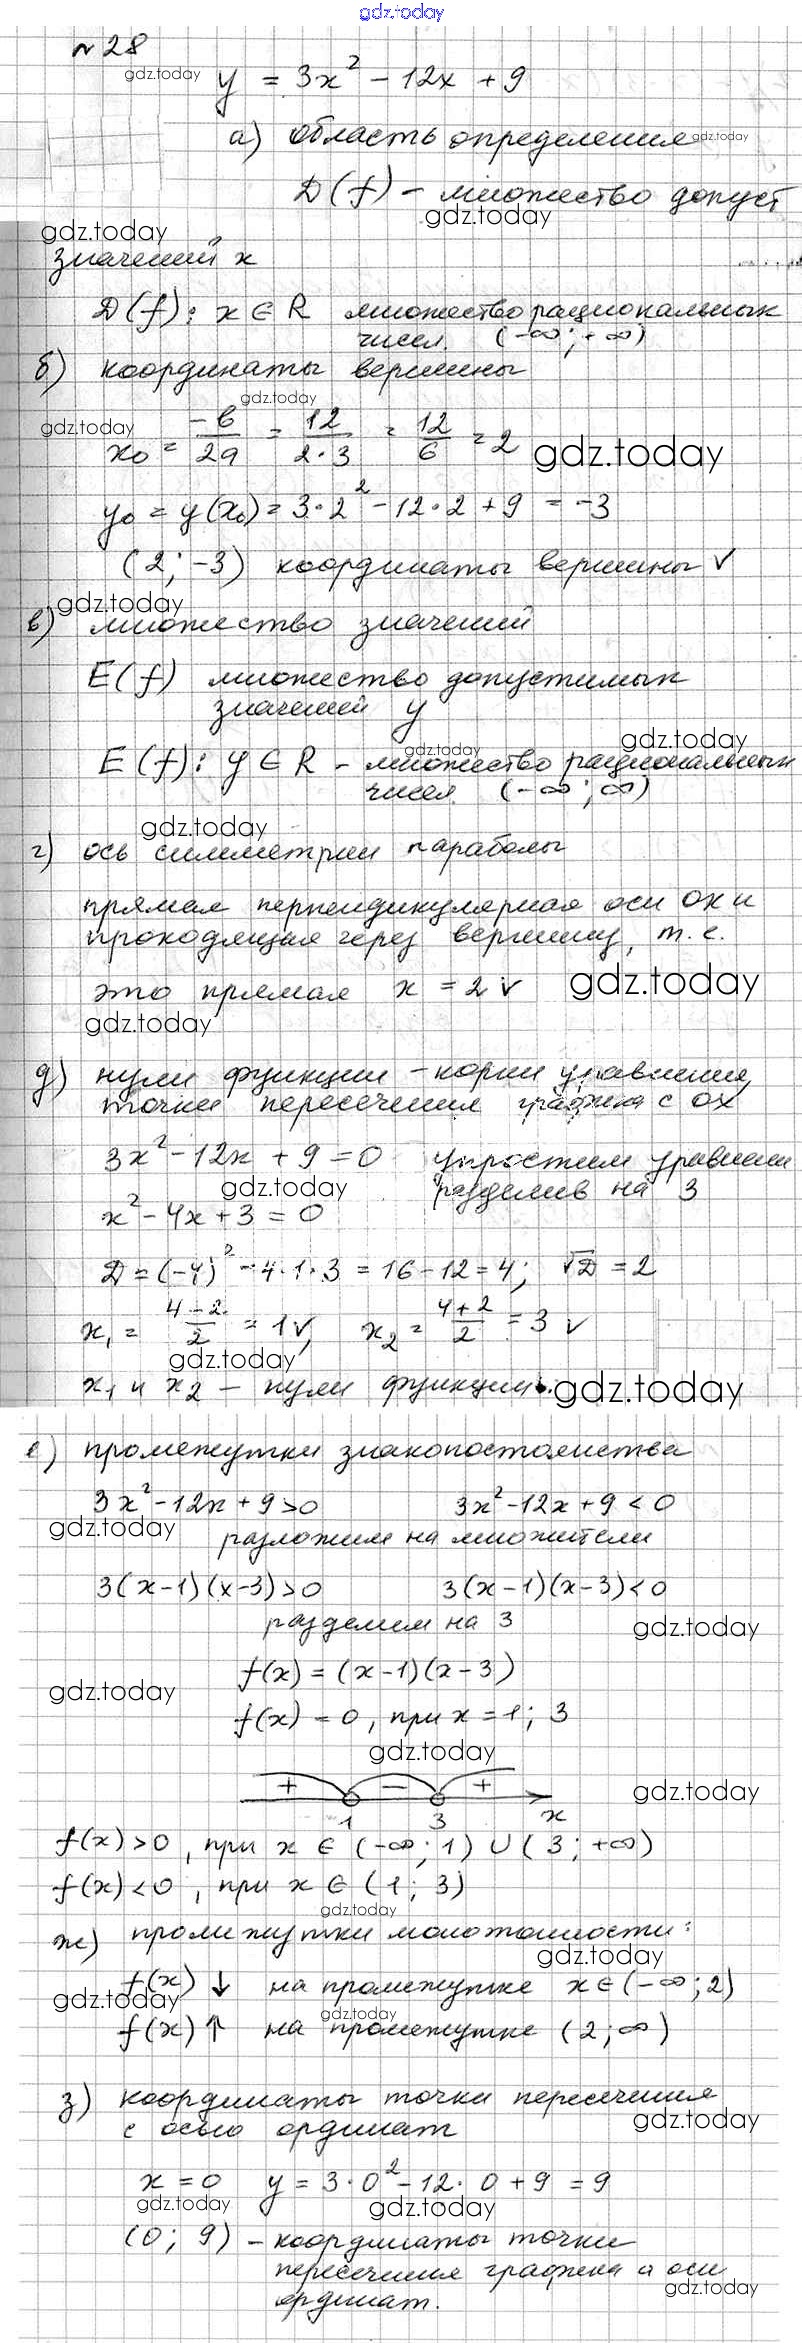 gdz.today
№ 28
gdz.today
y = 3x² - 12x + 9
а) область определения gdz.today
D(f) - множество допуст
gdz.today
gdz.today
значений x
D(f): x ∈ R множество рациональных
чисел. (-∞; +∞)
б) координаты вершины
gdz.today
gdz.today
x₀ = -в/2a = 12/2·3 = 12/6 = 2 gdz.today
y₀ = y(x₀) = 3·2² - 12·2 + 9 = -3
(2; -3) координаты вершины ✓
gdz.today
в) множество значений
E(f) множество допустимых
значений y
gdz.today
gdz.today
E(f): y ∈ R - множество рациональных
чисел. (-∞; ∞)
gdz.today
г) ось симметрии параболы
прямая перпендикулярная оси OX и
проходящая через вершину, т.е.
это прямая x = 2 ✓ gdz.today
gdz.today
д) нули функции - корни уравнения,
точки пересечения графика с OX
3x² - 12x + 9 = 0 упростим уравнении
gdz.today разделив на 3
x² - 4x + 3 = 0
D = (-4)² - 4·1·3 = 16 - 12 = 4; √D = 2
x₁ = 4-2/2 = 1 ✓, x₂ = 4+2/2 = 3 ✓
gdz.today
x₁ и x₂ - нули функции. gdz.today
е) промежутки знакопостоянства
3x² - 12x + 9 > 0 3x² - 12x + 9 < 0
gdz.today
разложим на множители
3(x-1)(x-3) > 0 3(x-1)(x-3) < 0
разделим на 3 gdz.today
f(x) = (x-1)(x-3)
gdz.today
f(x) = 0, при x = 1; 3
gdz.today
+ - + gdz.today
1 3 x
f(x) > 0, при x ∈ (-∞; 1) ∪ (3; +∞)
f(x) < 0, при x ∈ (1; 3)
gdz.today
ж) промежутки монотонности:
gdz.today
f(x) ↓ на промежутке x ∈ (-∞; 2)
gdz.today
gdz.today
f(x) ↑ на промежутке (2; ∞)
з) координаты точки пересечения
gdz.today
с осью ординат
x = 0 y = 3·0² - 12·0 + 9 = 9
gdz.today gdz.today
(0; 9) - координаты точки
пересечения графика и оси
gdz.today
ординат.